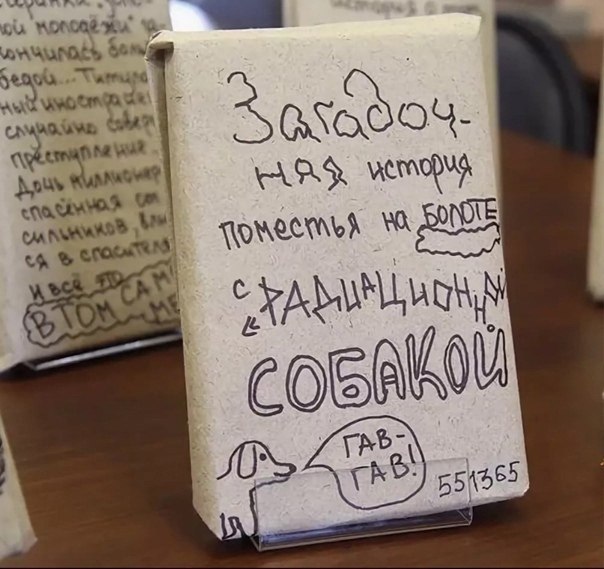 Загадоч-
ная история
поместья на БОЛОТЕ
с "РАДИАЦИОННОЙ
СОБАКОЙ
ГАВ-
ГАВ!
551365
ной молодёжи"
кончилась
бедой... Титуло
ный иностранец
случайно совер
преступление
Дочь миллионер
спасённая от
сильников, влю
ся в спасителя
И всё это
В ТОМ САМ
МЕ
история о том